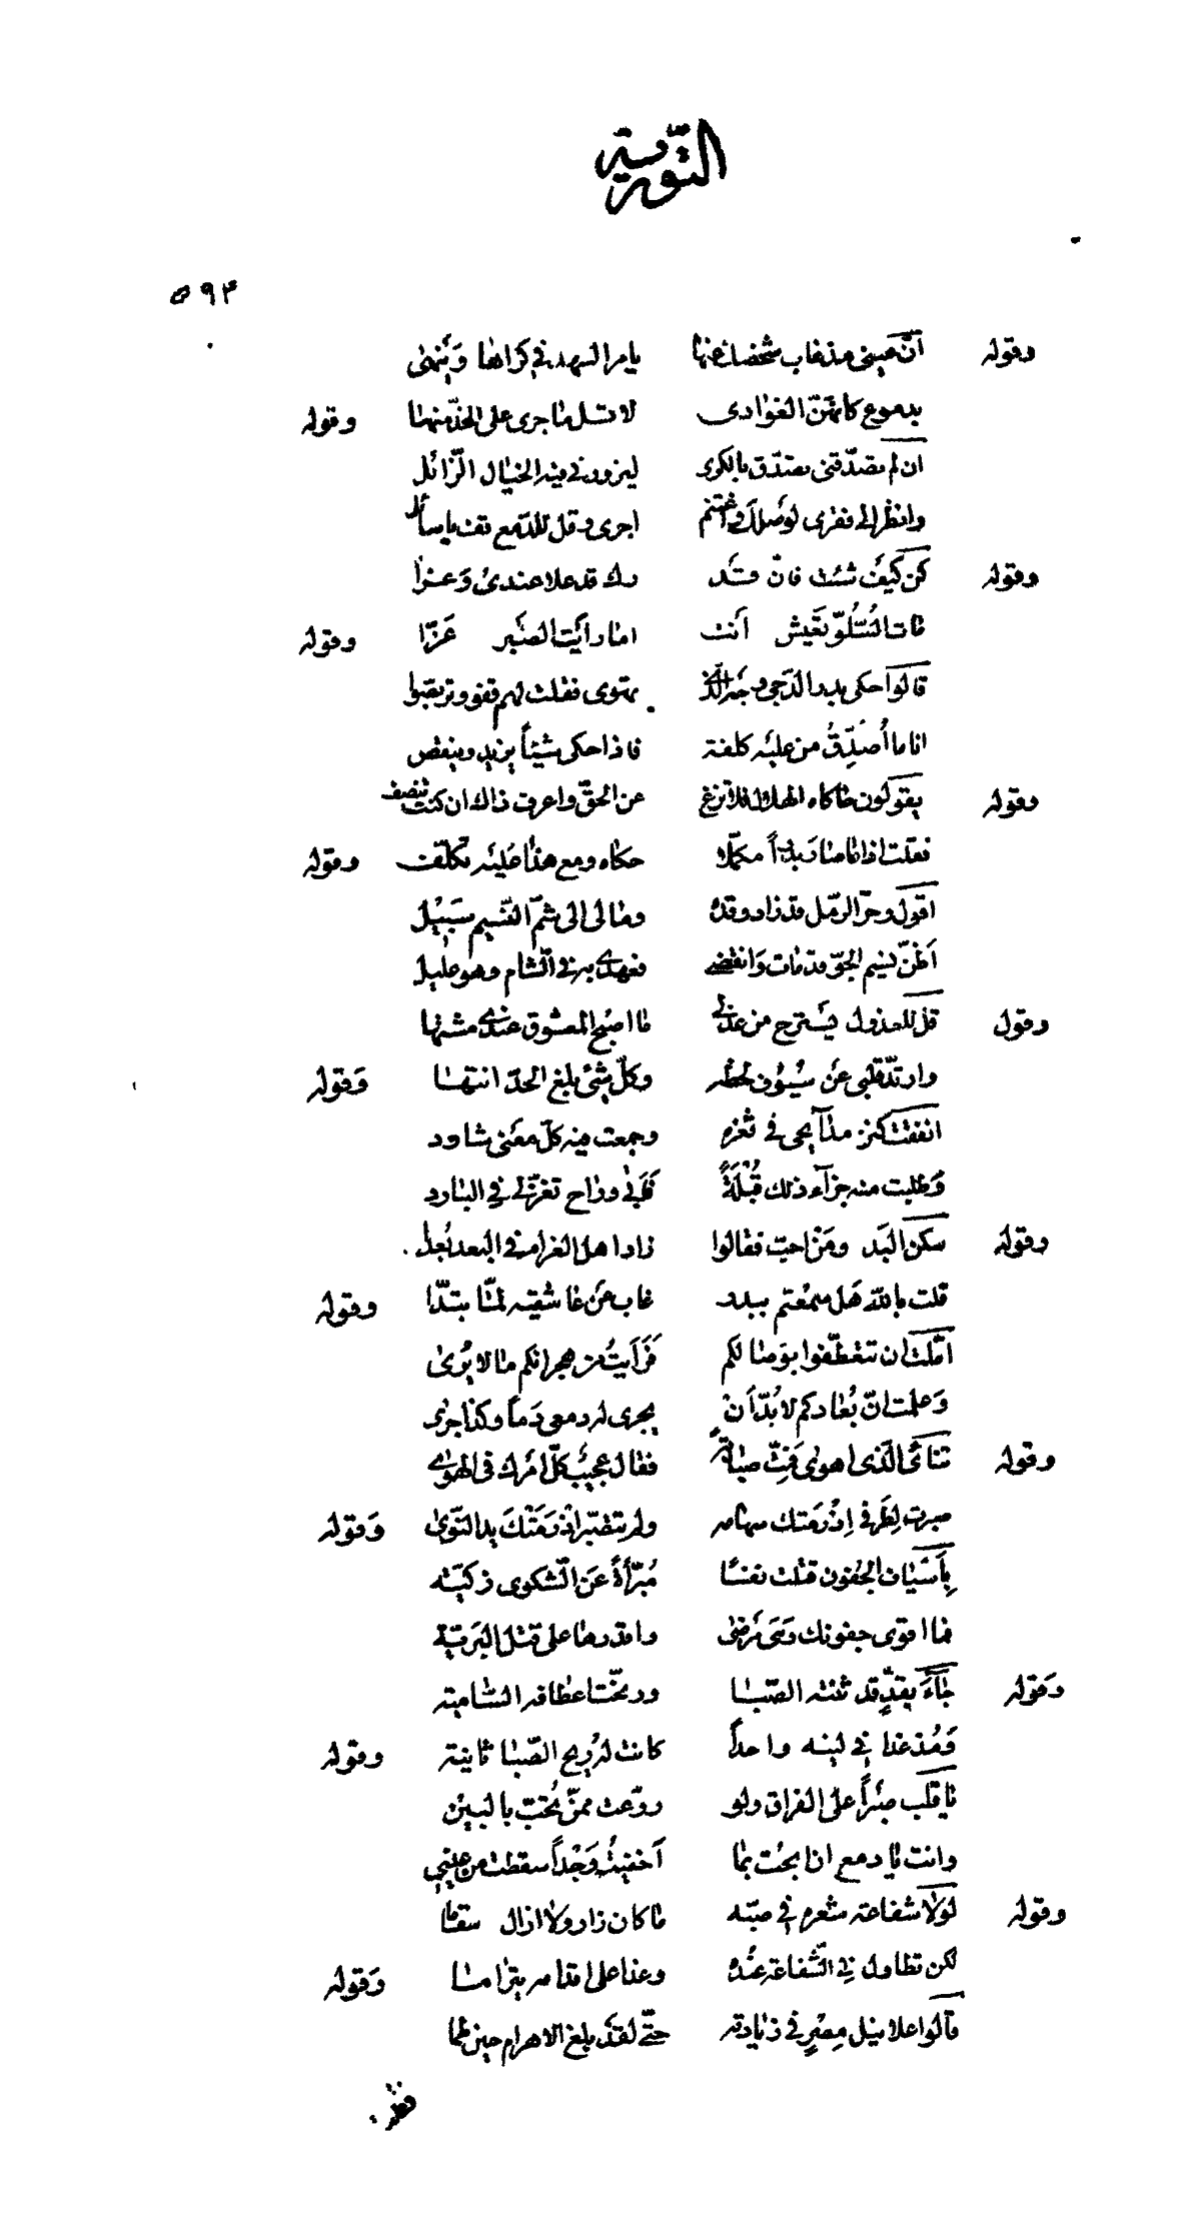 التورية
٥٩٣
وقوله انّ عيني مذ غاب شخصك عنها يامر السهد في كراها وَيَنهى
بدموع كانهنّ الغوادى لا تسل ما جرى على الخدّ منها وقوله
ان لم تصدّقنى تصدّق بالكرى ليزورنى فيه الخيال الزّائل
وانظر الى فقرى لوصلك واغتنم اجرى وقل للدّمع قف يا سائل
وقوله كن كيفَ شئت فانّ قَد رك قد علا عندى وَعَزا
مات السُّلُوّ بعَيش انت اما رأيت الصّبر عَزّا وقوله
قالوا حكى بدر الدّجى وجه الّذى تهوى فقلت لهم قفو وتربصوا
انا ما أُصَدِّقُ من عليه كلفة فاذا حكى شيئاً يزيد وينقص
وقوله يقولون حاكاه الهلال فلا تزغ عن الحقّ واعرف ذاك ان كنت تنصف
فقلت اذا ما صار بدراً مكمّلا حكاه ومع هذا عليه تكلّف وقوله
اقول وحرّ الرمل قد زاد وقده ومالى الى شمّ النّسيم سَبيل
اَظنّ نسيم الجوّ قد مات وَانقضى فعهدى به فى الشام وهو عليل
وقول قل للعذول يسترح من عذلى ما اصبح المعشوق عندى مشتها
وارتدّ قلبى عن سُيوف لحظه وكلّ شئ بلغ الحدّ انتها وَقوله
انفقت كنز مدآيحى فى ثغره وجمعت فيه كلّ معنى شارد
وَطلبت منه جزآء ذلك قُبْلَةً فَأبى وراح تغزّلى فى البارد
وقوله سكن البَد ومَن احبّ فقالوا زادا هل الغرام فى البعد بُعدا
قلت بالله هَل سمعتم ببدر غاب عَن عاشقيه لمّا تبدّا وقوله
امّلت ان تتعطّفوا بوصالكم فَرَاَيتُ من هجرانكم ما لا يُرىٰ
وَعلمت انّ بُعادكم لا بُدّ اَن يجرى له دمعى دَماً وكذا جرى
وقوله تنائى الّذى اهوى فَمتّ صبابةً فقال عجيب كلّ امرك فى الهوى
صبرت لِطَرفى اِذْ رَمَتك سهامه ولم تصبّر اذ رَمَتْكَ يد النّوىٰ وَقوله
بِاَسْيَاف الجُفون قتلت نفسًا مُبَرّأةً عَن الشكوى زكيّة
فما اقوى جفونك وَهى مَرضى واقدرها على قتل البَريّة
وَقوله جَآءَ بِقَدٍّ قد ثنته الصّبا ورنّحت اعطافه السّامية
وَمُذ غدا فى لينه واحداً كانت لهُ ريح الصّبا ثانية وقوله
يا قلب صبْراً على الفراق ولو روّعت ممّن تُحبّ بالبين
وانت يا دمع ان ابحت بما اَخفيته وَجْداً سقطت من عينى
وقوله لولا شفاعة شعره فى صبّه ما كان زار ولا ازال سقما
لكن تطاول فى الشّفاعة عنده وغدا على اقدامه يترامى وَقوله
قالوا علا نيل مِصْرٍ فى زيادته حتّى لقد بلغ الاهرام حين طما
فقلت